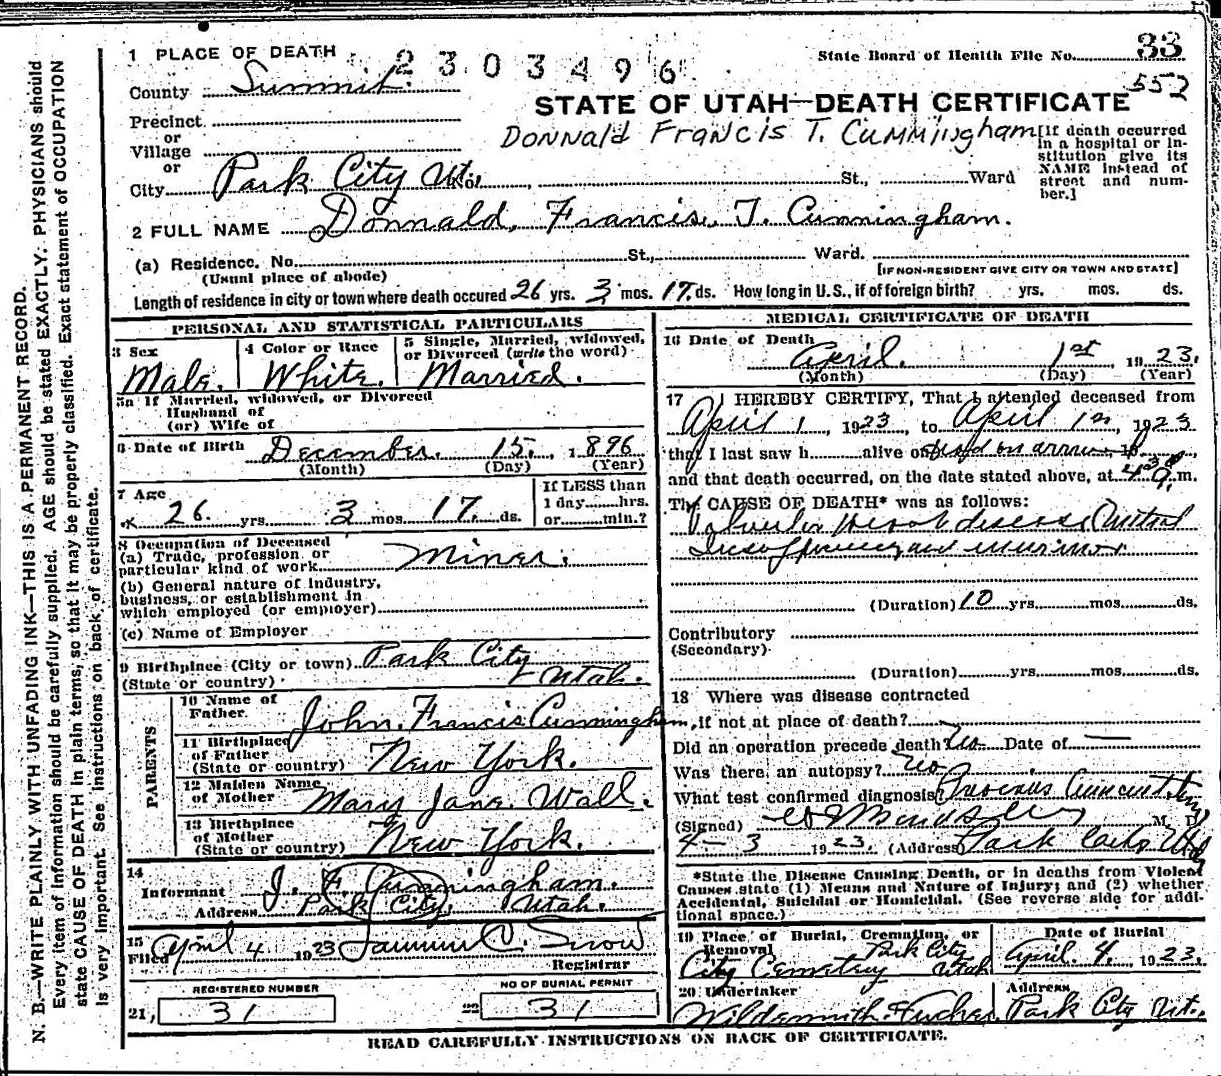 1 PLACE OF DEATH
2303496
State Board of Health File No. 33
552
County Summit.
STATE OF UTAH—DEATH CERTIFICATE
Precinct
or
Village
or
City Park City Ut. No. St., Ward
DONNALD FRANCIS T. CUMMINGHAM
[If death occurred
in a hospital or in-
stitution give its
NAME instead of
street and num-
ber.]
2 FULL NAME Donnald, Francis, T. Cunningham.
(a) Residence. No. St., Ward.
(Usual place of abode) [IF NON-RESIDENT GIVE CITY OR TOWN AND STATE]
Length of residence in city or town where death occured 26 yrs. 3 mos. 17 ds. How long in U. S., if of foreign birth? yrs. mos. ds.
PERSONAL AND STATISTICAL PARTICULARS
3 Sex
Male.
4 Color or Race
White.
5 Single, Married, widowed,
or Divorced (write the word)
Married.
5a If Married, widowed, or Divorced
Husband of
(or) Wife of
6 Date of Birth December. 15. 1896
(Month) (Day) (Year)
7 Age
26 yrs. 3 mos. 17. ds.
If LESS than
1 day hrs.
or min.?
8 Occupation of Deceased
(a) Trade, profession or
particular kind of work Miner.
(b) General nature of Industry,
business, or establishment in
which employed (or employer)
(c) Name of Employer
9 Birthplace (City or town) Park City
(State or country) Utah.
PARENTS
10 Name of
Father. John. Francis Cunningham
11 Birthplace
of Father
(State or country) New York.
12 Maiden Name
of Mother Mary Jane. Wall.
13 Birthplace
of Mother
(State or country) New York.
14
Informant J. F. Cunningham.
Address Park City, Utah.
15
Filed April 4 1923
Registrar
REGISTERED NUMBER
21, 31
NO OF BURIAL PERMIT
22 31
MEDICAL CERTIFICATE OF DEATH
16 Date of Death
April. 1st 1923.
(Month) (Day) (Year)
17 I HEREBY CERTIFY, That I attended deceased from
April 1, 1923, to April 1st, 1923
that I last saw h alive on dead on arrival 19
and that death occurred, on the date stated above, at 4:30 m.
The CAUSE OF DEATH* was as follows:
Valvular heart disease Mitral
Insufficiency and murmur.
(Duration) 10 yrs. mos. ds.
Contributory
(Secondary)
(Duration) yrs. mos. ds.
18 Where was disease contracted
if not at place of death?
Did an operation precede death? No. Date of —
Was there an autopsy? no
What test confirmed diagnosis
(Signed) M. D.
4-3 1923. (Address) Park City Utah
*State the Disease Causing Death, or in deaths from Violent
Causes state (1) Means and Nature of Injury; and (2) whether
Accidental, Suicidal or Homicidal. (See reverse side for addi-
tional space.)
19 Place of Burial, Cremation, or
Removal Park City
City Cemetery Utah
Date of Burial
April. 4, 1923.
20 Undertaker
Address
Park City Ut.
READ CAREFULLY INSTRUCTIONS ON BACK OF CERTIFICATE.
N. B.—WRITE PLAINLY WITH UNFADING INK—THIS IS A PERMANENT RECORD.
Every item of information should be carefully supplied. AGE should be stated EXACTLY. PHYSICIANS should
state CAUSE OF DEATH in plain terms, so that it may be properly classified. Exact statement of OCCUPATION
is very important. See instructions on back of certificate.